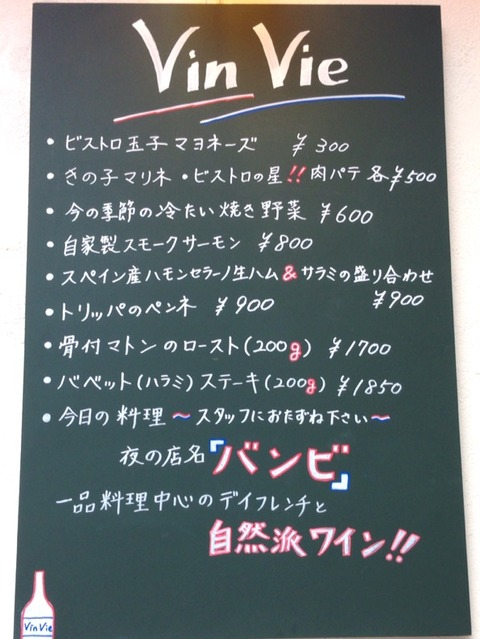 Vin Vie
• ビストロ玉子マヨネーズ ¥300
• きの子マリネ・ビストロの星!!肉パテ 各¥500
• 今の季節の冷たい焼き野菜 ¥600
• 自家製スモークサーモン ¥800
• スペイン産ハモンセラーノ生ハム&サラミの盛り合わせ
¥900
• トリッパのペンネ ¥900
• 骨付マトンのロースト(200g) ¥1700
• バベット(ハラミ)ステーキ(200g) ¥1850
• 今日の料理〜スタッフにおたずね下さい〜
夜の店名『バンビ』
一品料理中心のデイフレンチと
自然派ワイン!!
Vin Vie